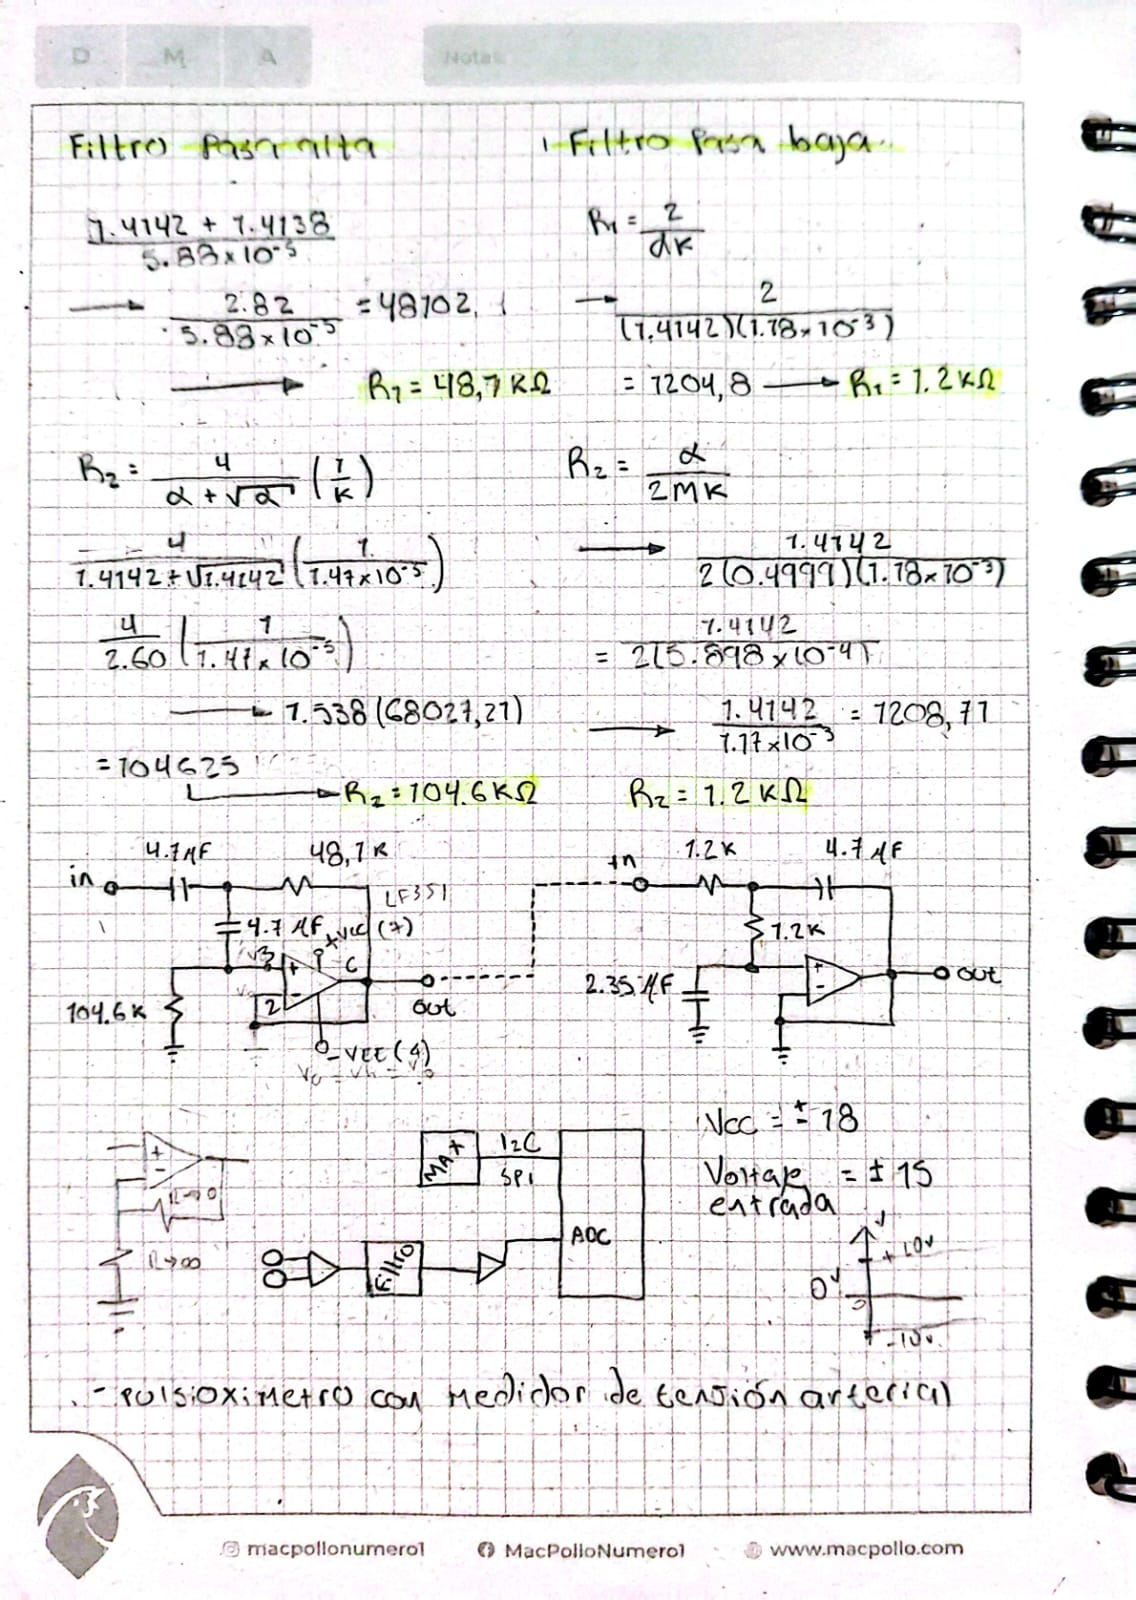 D M A Notas
Filtro Pasa alta
1.4142 + 1.4138
5.88x10⁻⁵
2.82 = 48102,1
5.88x10⁻⁵
R1 = 48,1 KΩ
R2 = 4 (1)
α + √α K
4 (1)
1.4142 + √1.4142 1.47x10⁻⁵
4 (1)
2.60 1.47x10⁻⁵
1.538 (68027,21)
= 104625
R2 = 104.6 KΩ
Filtro Pasa baja
R1 = 2
αK
2
(1.4142)(1.18x10⁻³)
= 1204,8 R1 = 1.2 KΩ
R2 = α
2MK
1.4142
2(0.4999)(1.18x10⁻³)
1.4142
= 2(5.898x10⁻⁴)
1.4142 = 1208,71
1.17x10⁻³
R2 = 1.2 KΩ
4.7 μF 48,1 K
in
LF351
4.7 μF +VCC (7)
V3
+
-
6
2
104.6 K
out
-VEE (4)
in 1.2K 4.7 μF
1.2K
2.35 μF
+
-
out
+
-
R→0
R→∞
MAX I2C
SPI
Filtro
ADC
VCC = ± 18
Voltaje = ± 15
entrada
V
+10V
0V
0
-10V
- Pulsioximetro con medidor de tensión arterial
macpollonumero1 MacPolloNumero1 www.macpollo.com